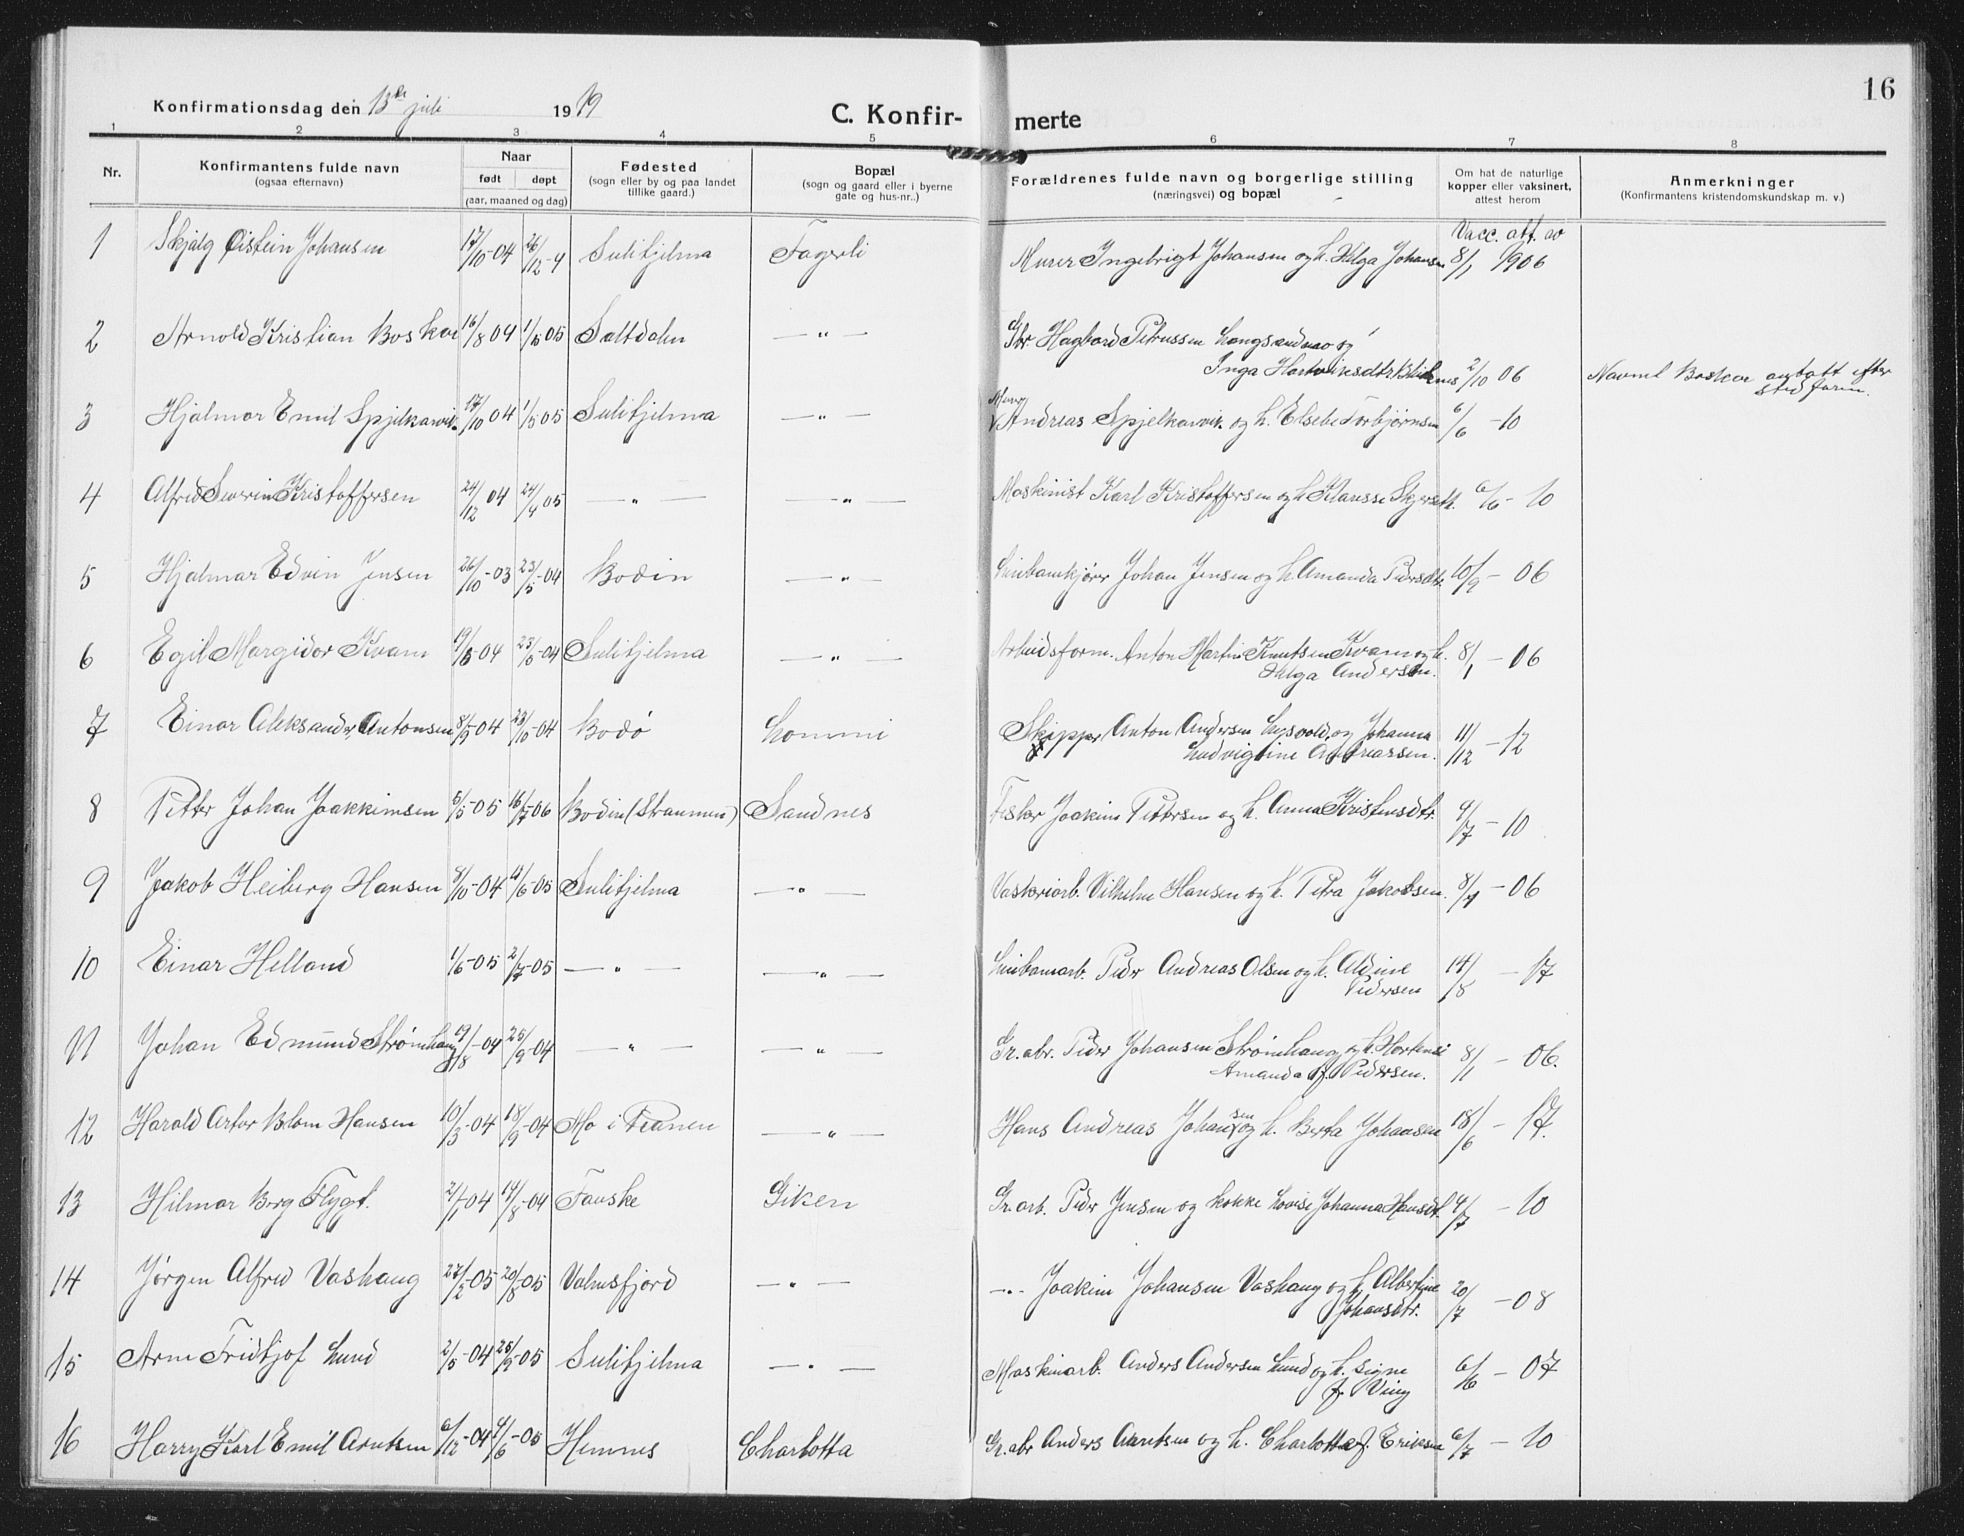 16
Konfirmationsdag den 13de juli 1919
C. Konfirmerte
1 2 3 4 5 6 7 8
Nr.
Konfirmantens fulde navn
(ogsaa efternavn)
Naar
født døpt
(aar, maaned og dag)
Fødested
(sogn eller by og paa landet
tillike gaard.)
Bopæl
(sogn og gaard eller i byerne
gate og hus-nr..)
Forældrenes fulde navn og borgerlige stilling
(næringsvei) og bopæl
Om hat de naturlige
kopper eller vaksinert,
attest herom
Anmerkninger
(Konfirmantens kristendomskundskap m. v.)
Vacc. att. av
1 Skjalg Øistein Johansen 17/10-04 26/12-4 Sulitjelma Fagerli Murer Ingebrigt Johansen og h. Helga Johansen 8/1 1906
2 Arnold Kristian Boskar 16/8 04 Saltdalen —"— Gbr. Hagbard Petrussen Langsandmo og
Inga Hartviksdtr. 2/10 06 Navnet Boskar antatt efter
stedfaren.
3 Hjalmar Emil Spjelkarvik 17/10 04 1/5 05 Sulitjelma —"— Andreas Spjelkarvik og h. Elsebe Torbjørnsen 6/6 -10
4 Alfred Severin Kristoffersen 24/12 04 24/4 05 —"— —"— Maskinist Karl Kristoffersen og h. 6/6 - 10
5 Hjalmar Edvin Jensen 26/10-03 23/5-04 Bodin —"— Linbanekjører Johan Jensen og h. Amanda Pedersdtr. 10/9 - 06
6 Egil Margidor Kvam -04 -04 Sulitjelma —"— Arbeidsform. Anton Martin Knutsen Kvam og h.
Helga Andersen. 8/1 - 06
7 Einar Aleksander Antonsen 8/9-04 23/10-04 Bodø Lommi Skipper Anton Andersen Lysvold, og Johanna
Ludvigtine Andreassen. 11/12 - 12
8 Petter Johan Joakkimsen 5/5-05 16/7-06 Bodin (Straumen) Sandnes Fisker Joakim Pettersen og h. Anna Kristensdtr. 9/7 - 10
9 Jakob Heiberg Hansen 8/10-04 -05 Sulitjelma —"— Vaskeriarb. Vilhelm Hansen og h. Petra Jakobsen. 8/1 - 06
10 Einar Helland 1/6-05 2/7-05 —"— —"— Linbanearb. Peder Andreas Olsen og h. Aldine
Pedersen 14/8 - 17
11 Johan Edmund Strømhaug 19/8-04 25/9-04 —"— —"— Gr. abr. Peder Johansen Strømhaug og h. Hortensi
Amanda f. Pedersen. 8/1 - 06.
12 Harald Artor Blom Hansen 10/3-04 18/9-04 Mo i Ranen —"— Hans Andreas Johansen og h. Berta Johansen 18/6 - 17.
13 Hilmar Berg Flygt. 2/1-04 14/8-04 Fauske Giken Gr. arb. Peder Jensen og kokke Lovise Johanna Hansdtr. 4/7 - 10
14 Jørgen Alfred Vashaug 27/2-05 20/8-05 Valnesfjord —"— —"— Joakim Johansen Vashaug og h. Albertine
Johansdtr. 20/7 - 08
15 Arne Fridtjof Lund 2/5-04 25/9-05 Sulitjelma —"— Maskinarb. Anders Andersen Lund og h. Signe
f. Ving 6/6 - 07
16 Harry Karl Emil Arntsen 6/12-04 4/6-05 Hemnes Charlotta Gr. abr Anders Arntsen og h. Charlotte f. Eriksen 6/7 - 10